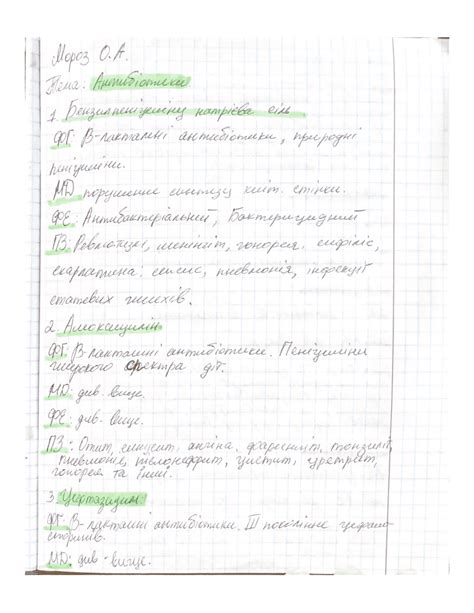 Мороз О.А.
Тема. Антибіотики
1. Бензилпеніциліну натрієва сіль
ФГ: В-лактамні антибіотики, природні
пеніциліни.
МД порушення синтезу кліт. стінки.
ФЕ: Антибактеріальний, Бактерицидний
ПЗ: менінгіт, гонорея. сифіліс,
скарлатина. сепсис, пневмонія, інфекції
статевих шляхів.
2. Амоксицилін
ФГ: В-лактамні антибіотики. Пеніциліни
широкого спектра дії.
МД: див. вище.
ФЕ: див. вище.
ПЗ: Отит, синусит, ангіна, фарингіт, тонзиліт,
пневмонія, пієлонефрит, цистит, уретрит,
гонорея та інші.
3. Цефтазидим
ФГ: В-лактамні антибіотики. III покоління цефало-
споринів.
МД: див - вище.